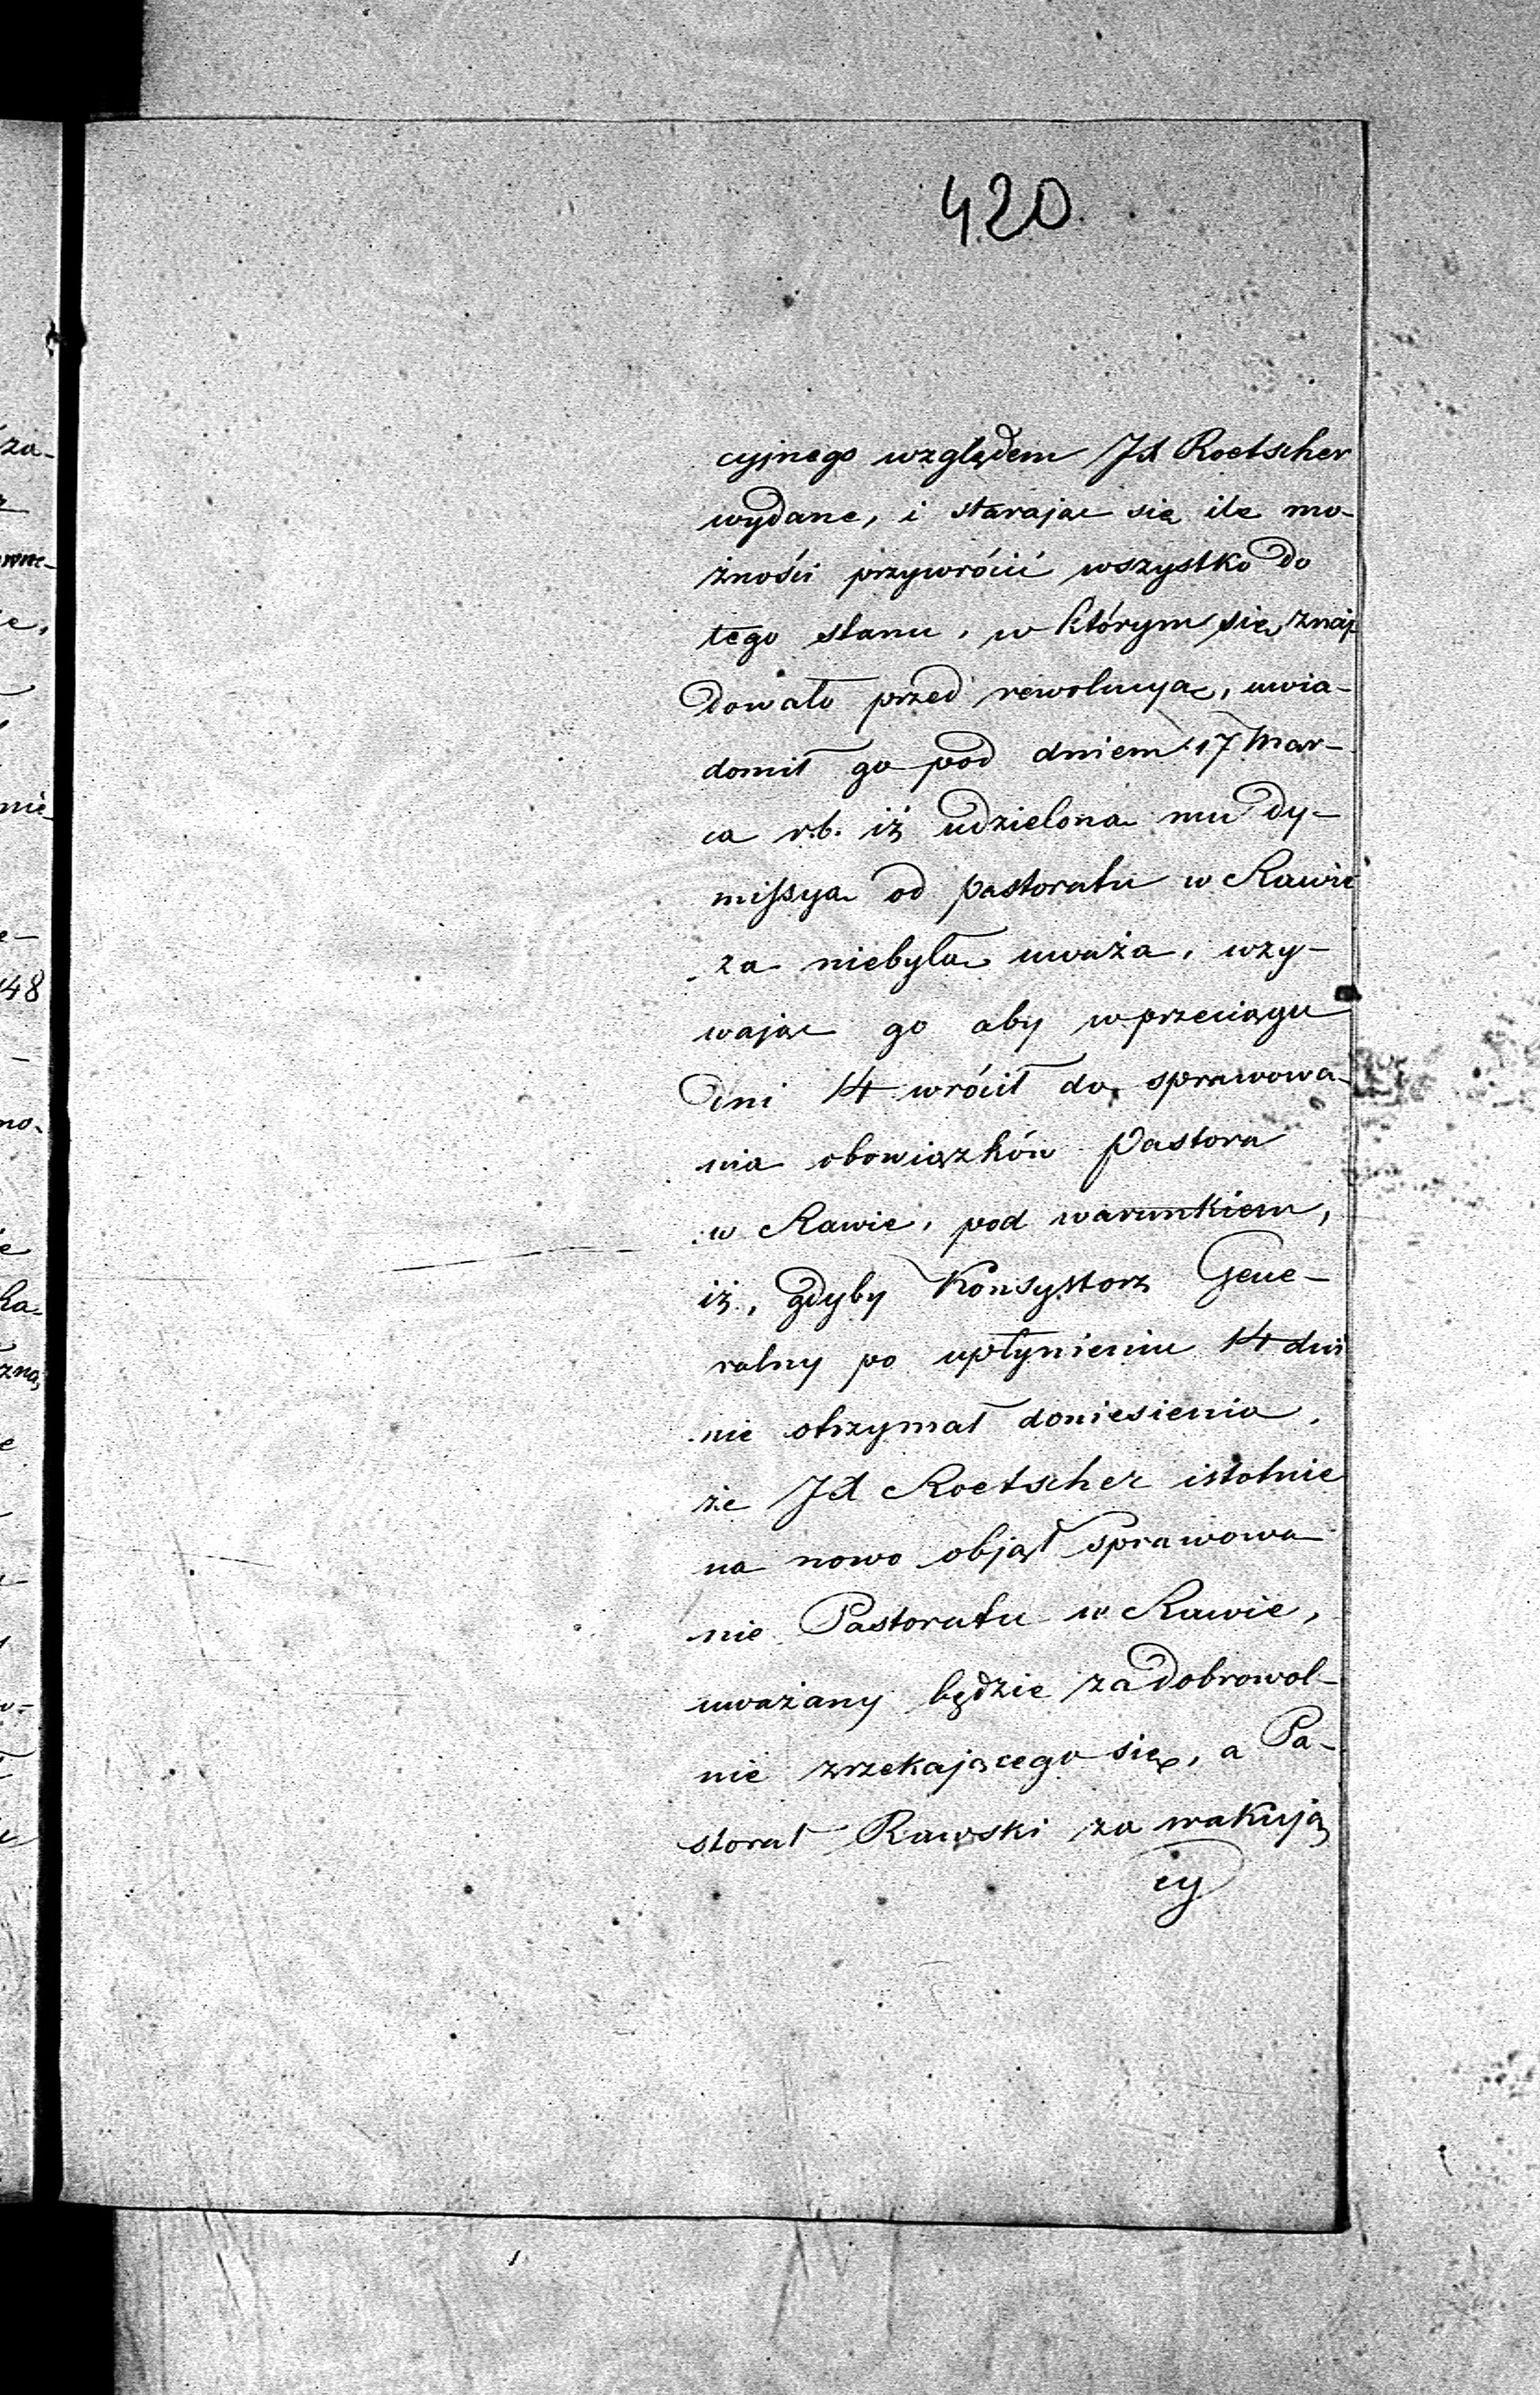 420.
cyjnego względem JX Roetscher
wydane, i starając się ile mo-
żności przywrócić wszystko do
tego stanu, w którym się znaj-
dowało przed rewolucyą, uwia-
domił go pod dniem 17 Mar-
ca r.b. iż udzielona mu dy-
missya od pastoratu w Rawie
za niebyłą uważa, wzy-
wając go aby w przeciągu
dni 14 wrócił do sprawowa-
nia obowiązków Pastora
w Rawie, pod warunkiem,
iż, gdyby Konsystorz Gene-
ralny po upłynieniu 14 dni
nie otrzymał doniesienia,
że JX Roetscher istotnie
na nowo objął sprawowa
nie Pastoratu w Rawie,
uważany będzie za dobrowol-
nie zrzekającego się, a Pa-
storat Rawski za wakują
cy
148